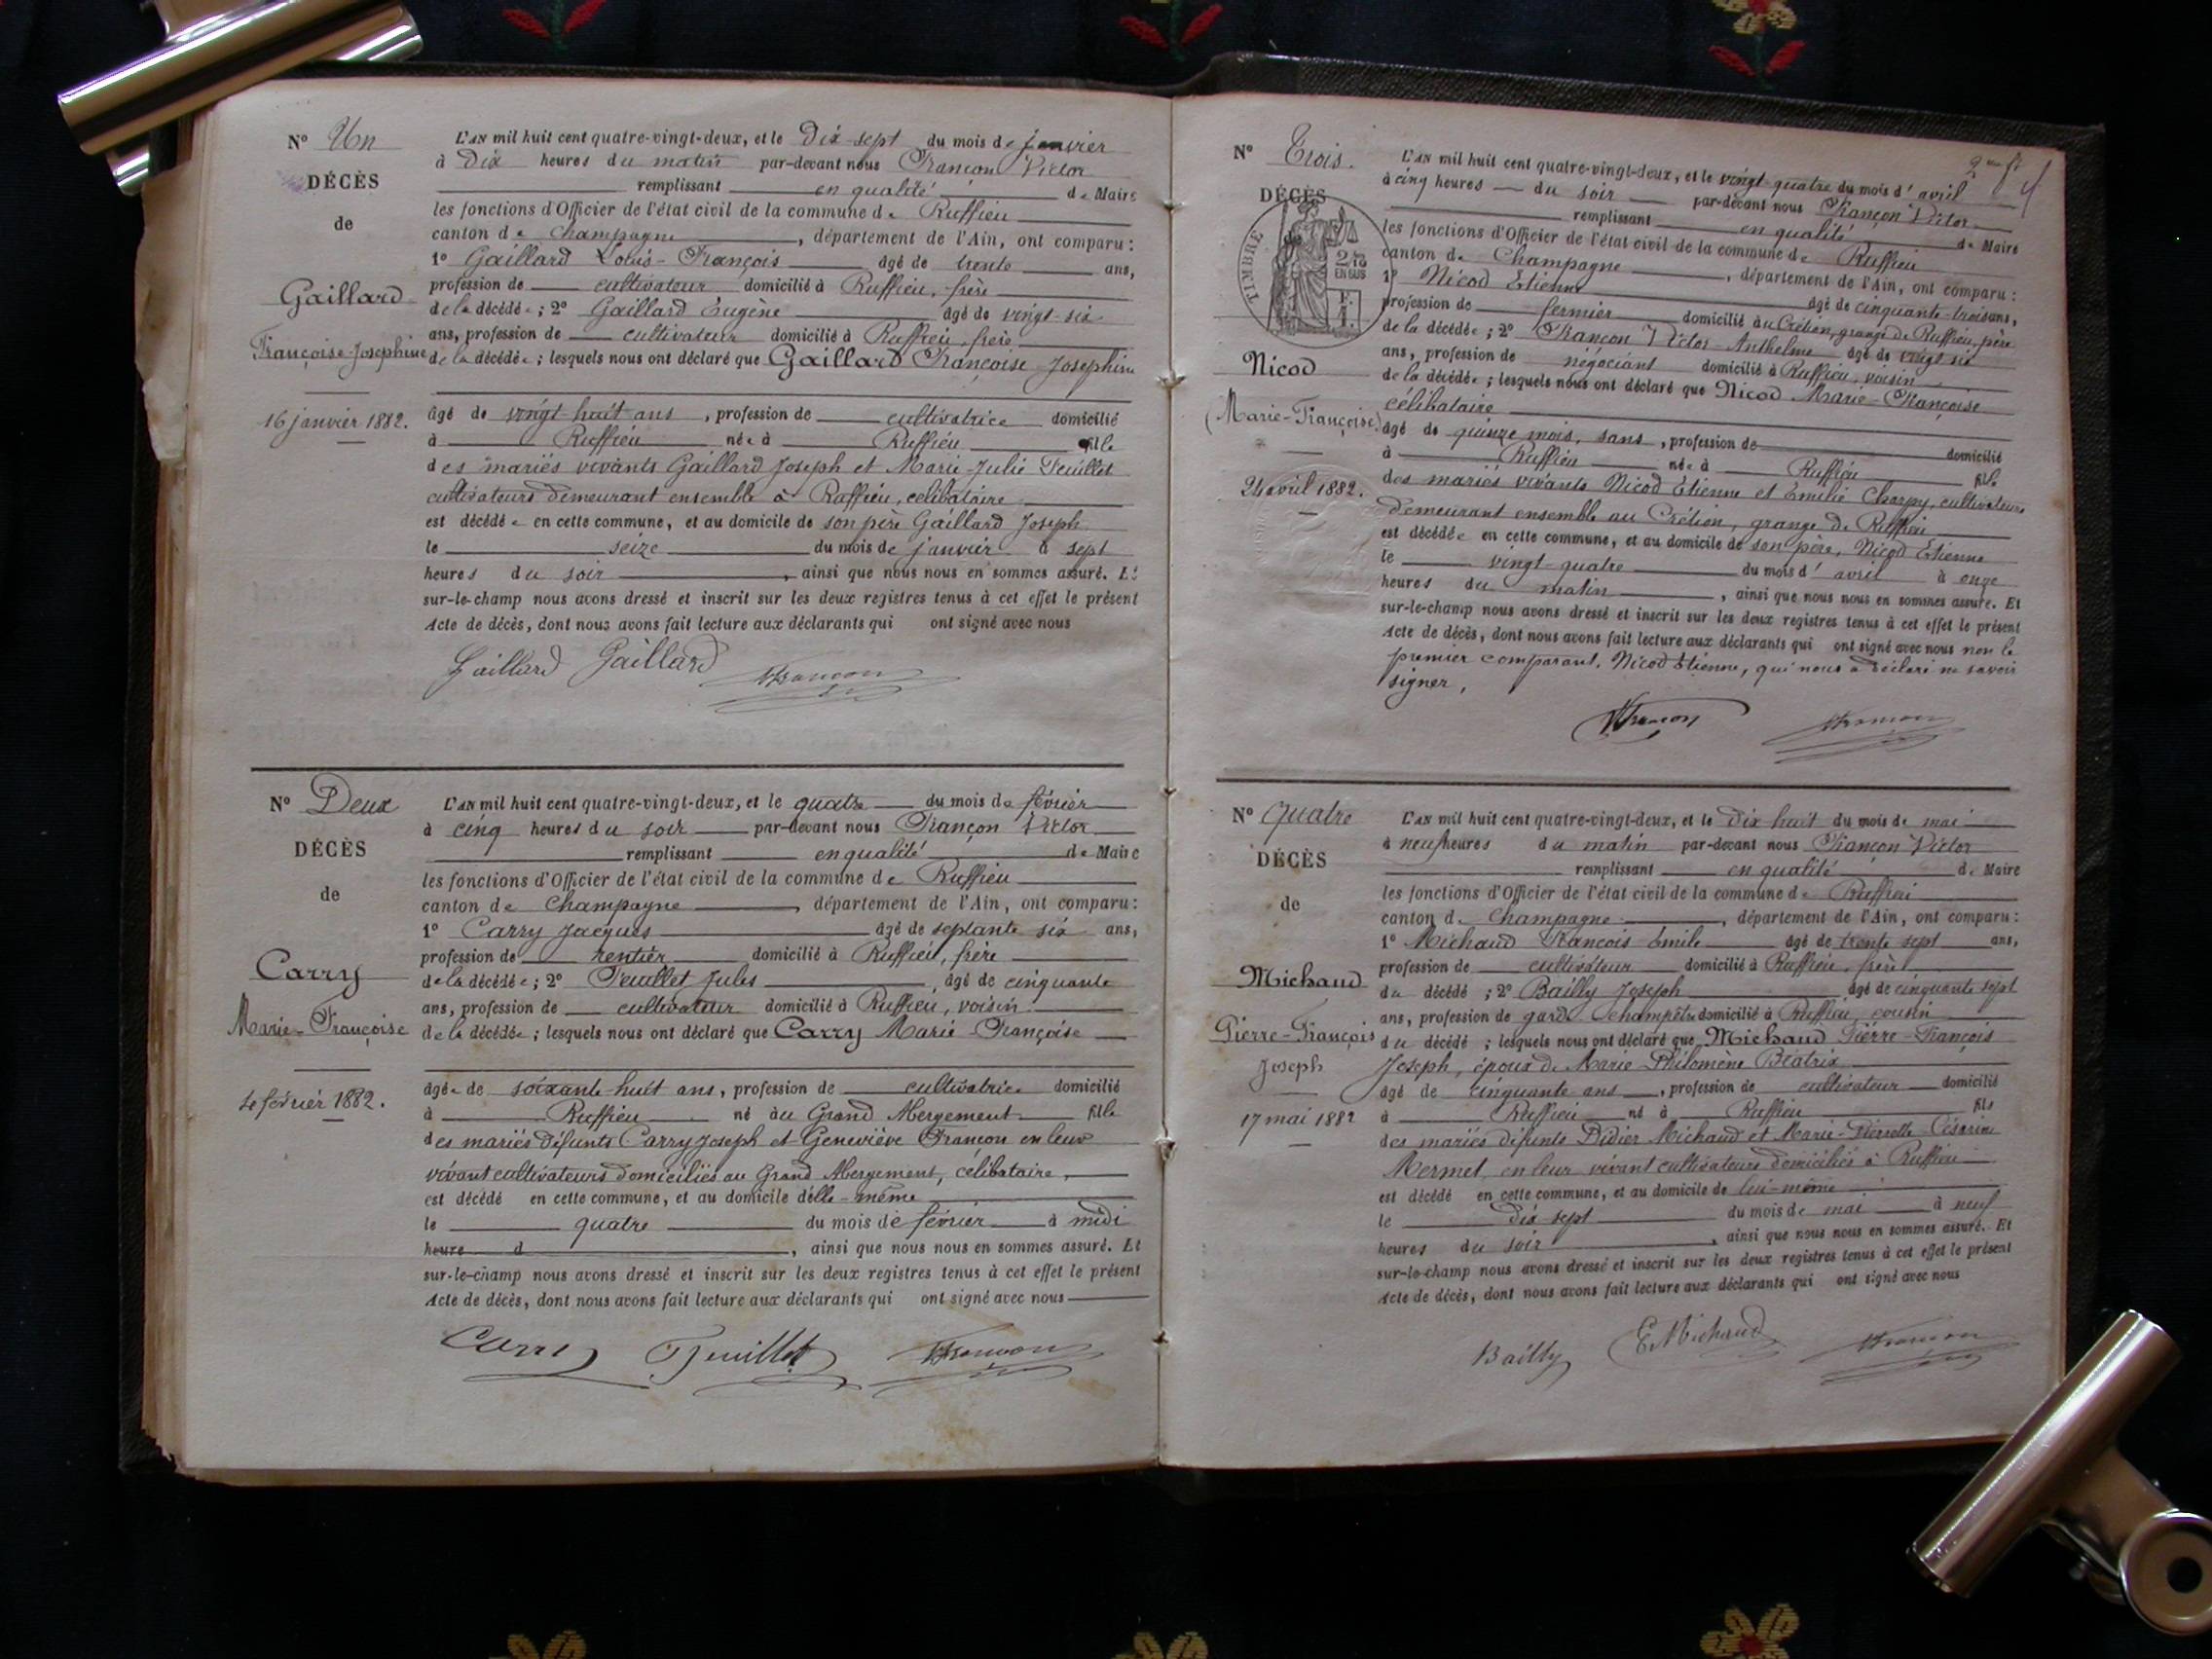 N° Un
DÉCÈS
de
Gaillard
Françoise-Joséphine
16 janvier 1882.
L'AN mil huit cent quatre-vingt-deux, et le Dix-sept du mois de janvier
à Dix heures du matin par-devant nous Françon Victor
remplissant en qualité de Maire
les fonctions d'Officier de l'état civil de la commune de Ruffieu
canton de Champagne, département de l'Ain, ont comparu :
1° Gaillard Louis-François âgé de trente ans,
profession de cultivateur domicilié à Ruffieu, frère
de la décédée ; 2° Gaillard Eugène âgé de vingt-six
ans, profession de cultivateur domicilié à Ruffieu, frère
de la décédée ; lesquels nous ont déclaré que Gaillard Françoise Joséphine
âgé de vingt-huit ans, profession de cultivatrice domicilié
à Ruffieu née à Ruffieu fille
des mariés vivants Gaillard Joseph et Marie-Julie Feuillet
cultivateurs demeurant ensemble à Ruffieu, célibataire
est décédée en cette commune, et au domicile de son père Gaillard Joseph
le seize du mois de janvier à sept
heures du soir, ainsi que nous nous en sommes assuré. Et
sur-le-champ nous avons dressé et inscrit sur les deux registres tenus à cet effet le présent
Acte de décès, dont nous avons fait lecture aux déclarants qui ont signé avec nous
Gaillard Gaillard VFrançon
N° Deux
DÉCÈS
de
Carry
Marie-Françoise
4 février 1882.
L'AN mil huit cent quatre-vingt-deux, et le quatre du mois de février
à cinq heures du soir par-devant nous Françon Victor
remplissant en qualité de Maire
les fonctions d'Officier de l'état civil de la commune de Ruffieu
canton de Champagne, département de l'Ain, ont comparu :
1° Carry Jacques âgé de septante six ans,
profession de rentier domicilié à Ruffieu, frère
de la décédée ; 2° Feuillet Jules, âgé de cinquante
ans, profession de cultivateur domicilié à Ruffieu, voisin
de la décédée ; lesquels nous ont déclaré que Carry Marie Françoise
âgée de soixante-huit ans, profession de cultivatrice domicilié
à Ruffieu né au Grand Abergement fille
des mariés défunts Carry Joseph et Geneviève Françon en leur
vivant cultivateurs domiciliés au Grand Abergement, célibataire,
est décédé en cette commune, et au domicile d'elle-même
le quatre du mois de février à midi
heure d, ainsi que nous nous en sommes assuré. Et
sur-le-champ nous avons dressé et inscrit sur les deux registres tenus à cet effet le présent
Acte de décès, dont nous avons fait lecture aux déclarants qui ont signé avec nous
Carry Feuillet VFrançon
N° Trois.
DÉCÈS
TIMBRE
EN SUS
Nicod
(Marie-Françoise)
24 avril 1882.
L'AN mil huit cent quatre-vingt-deux, et le vingt-quatre du mois d'avril
à cinq heures du soir par-devant nous Françon Victor
remplissant en qualité de Maire
les fonctions d'Officier de l'état civil de la commune de Ruffieu
canton de Champagne, département de l'Ain, ont comparu :
1° Nicod Etienne âgé de cinquante-trois ans,
profession de fermier domicilié au Crétion, grange de Ruffieu, père
de la décédée ; 2° Françon Victor-Anthelme âgé de vingt six
ans, profession de négociant domicilié à Ruffieu, voisin
de la décédée ; lesquels nous ont déclaré que Nicod Marie-Françoise
célibataire
âgé de quinze mois, sans, profession de domicilié
à Ruffieu née à Ruffieu fille
des mariés vivants Nicod Etienne et Emilie Charpy, cultivateurs
demeurant ensemble au Crétion, grange de Ruffieu
est décédée en cette commune, et au domicile de son père, Nicod Etienne
le vingt-quatre du mois d'avril à onze
heures du matin, ainsi que nous nous en sommes assuré. Et
sur-le-champ nous avons dressé et inscrit sur les deux registres tenus à cet effet le présent
Acte de décès, dont nous avons fait lecture aux déclarants qui ont signé avec nous non le
premier comparant, Nicod Etienne, qui nous a déclaré ne savoir
signer,
VFrançon VFrançon
N° Quatre
DÉCÈS
de
Michaud
Pierre-François
Joseph
17 mai 1882
L'AN mil huit cent quatre-vingt-deux, et le dix huit du mois de mai
à neuf heures du matin par-devant nous Françon Victor
remplissant en qualité de Maire
les fonctions d'Officier de l'état civil de la commune de Ruffieu
canton de Champagne, département de l'Ain, ont comparu :
1° Michaud François Emile âgé de trente sept ans,
profession de cultivateur domicilié à Ruffieu, frère
du décédé ; 2° Bailly Joseph âgé de cinquante sept
ans, profession de garde champêtre domicilié à Ruffieu, cousin
du décédé ; lesquels nous ont déclaré que Michaud Pierre-François
Joseph, époux de Marie Philomène Béatrix
âgé de cinquante ans, profession de cultivateur domicilié
à Ruffieu né à Ruffieu fils
des mariés défunts Didier Michaud et Marie-Pierrette Césarine
Mermet, en leur vivant cultivateurs domiciliés à Ruffieu
est décédé en cette commune, et au domicile de lui-même
le dix sept du mois de mai à neuf
heures du soir, ainsi que nous nous en sommes assuré. Et
sur-le-champ nous avons dressé et inscrit sur les deux registres tenus à cet effet le présent
Acte de décès, dont nous avons fait lecture aux déclarants qui ont signé avec nous
Bailly EMichaud VFrançon